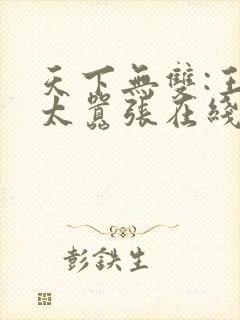 天下無雙:王
太囂張在綫
彭鉄生